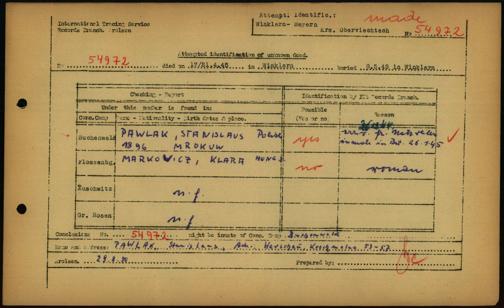 International Tracing Service
Records Branch. Arolsen
Attempt. Identific.:
made
Winklarn- Bayern
Krs. Oberviechtach
No 54972
Attempted identification of unknown dead.
No 54972 died on 19/21.4.45 in Winklarn buried 8.5.45 in Winklarn
Checking - Report
Identification by ITS Records Branch.
Under this number is found in:
Possible
(Yes or no)
Reason
Conc.Camp Name - Nationality - Birth dates & place.
Buchenwald PAWLAK, STANISLAUS Polish
1896 MROKUW
yes
inmate in Bu. 26.1.45
Flossenbg. MARKOWICZ, KLARA HUNG.
no
woman
Auschwitz n.f.
Gr. Rosen n.f.
Conclusion: No. 54972 might be inmate of Conc. Camp Buchenwald
Name and Adress: PAWLAK, Stanislaus,
Arolsen, Prepared by: